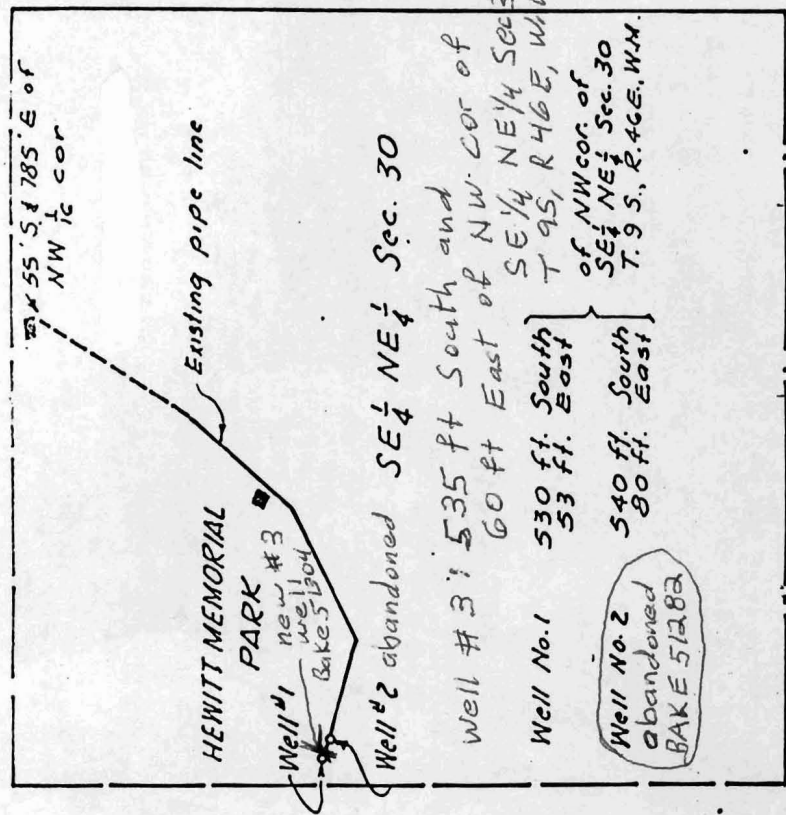 55' S, & 785' E of
NW 1/16 cor
Existing pipe line
HEWITT MEMORIAL
PARK
Well #1
new #3
well
Bake 51304
Well #2 abandoned
SE 1/4 NE 1/4 Sec. 30
Well #3: 535 ft South and
60 ft East of NW cor of
SE 1/4 NE 1/4 Sec
T 9S, R 46E,
Well No. 1
530 ft. South
53 ft. East
Well No. 2
abandoned
BAKE 51282
540 ft. South
80 ft. East
of NW cor. of
SE 1/4 NE 1/4 Sec. 30
T. 9 S., R. 46 E., W.M.